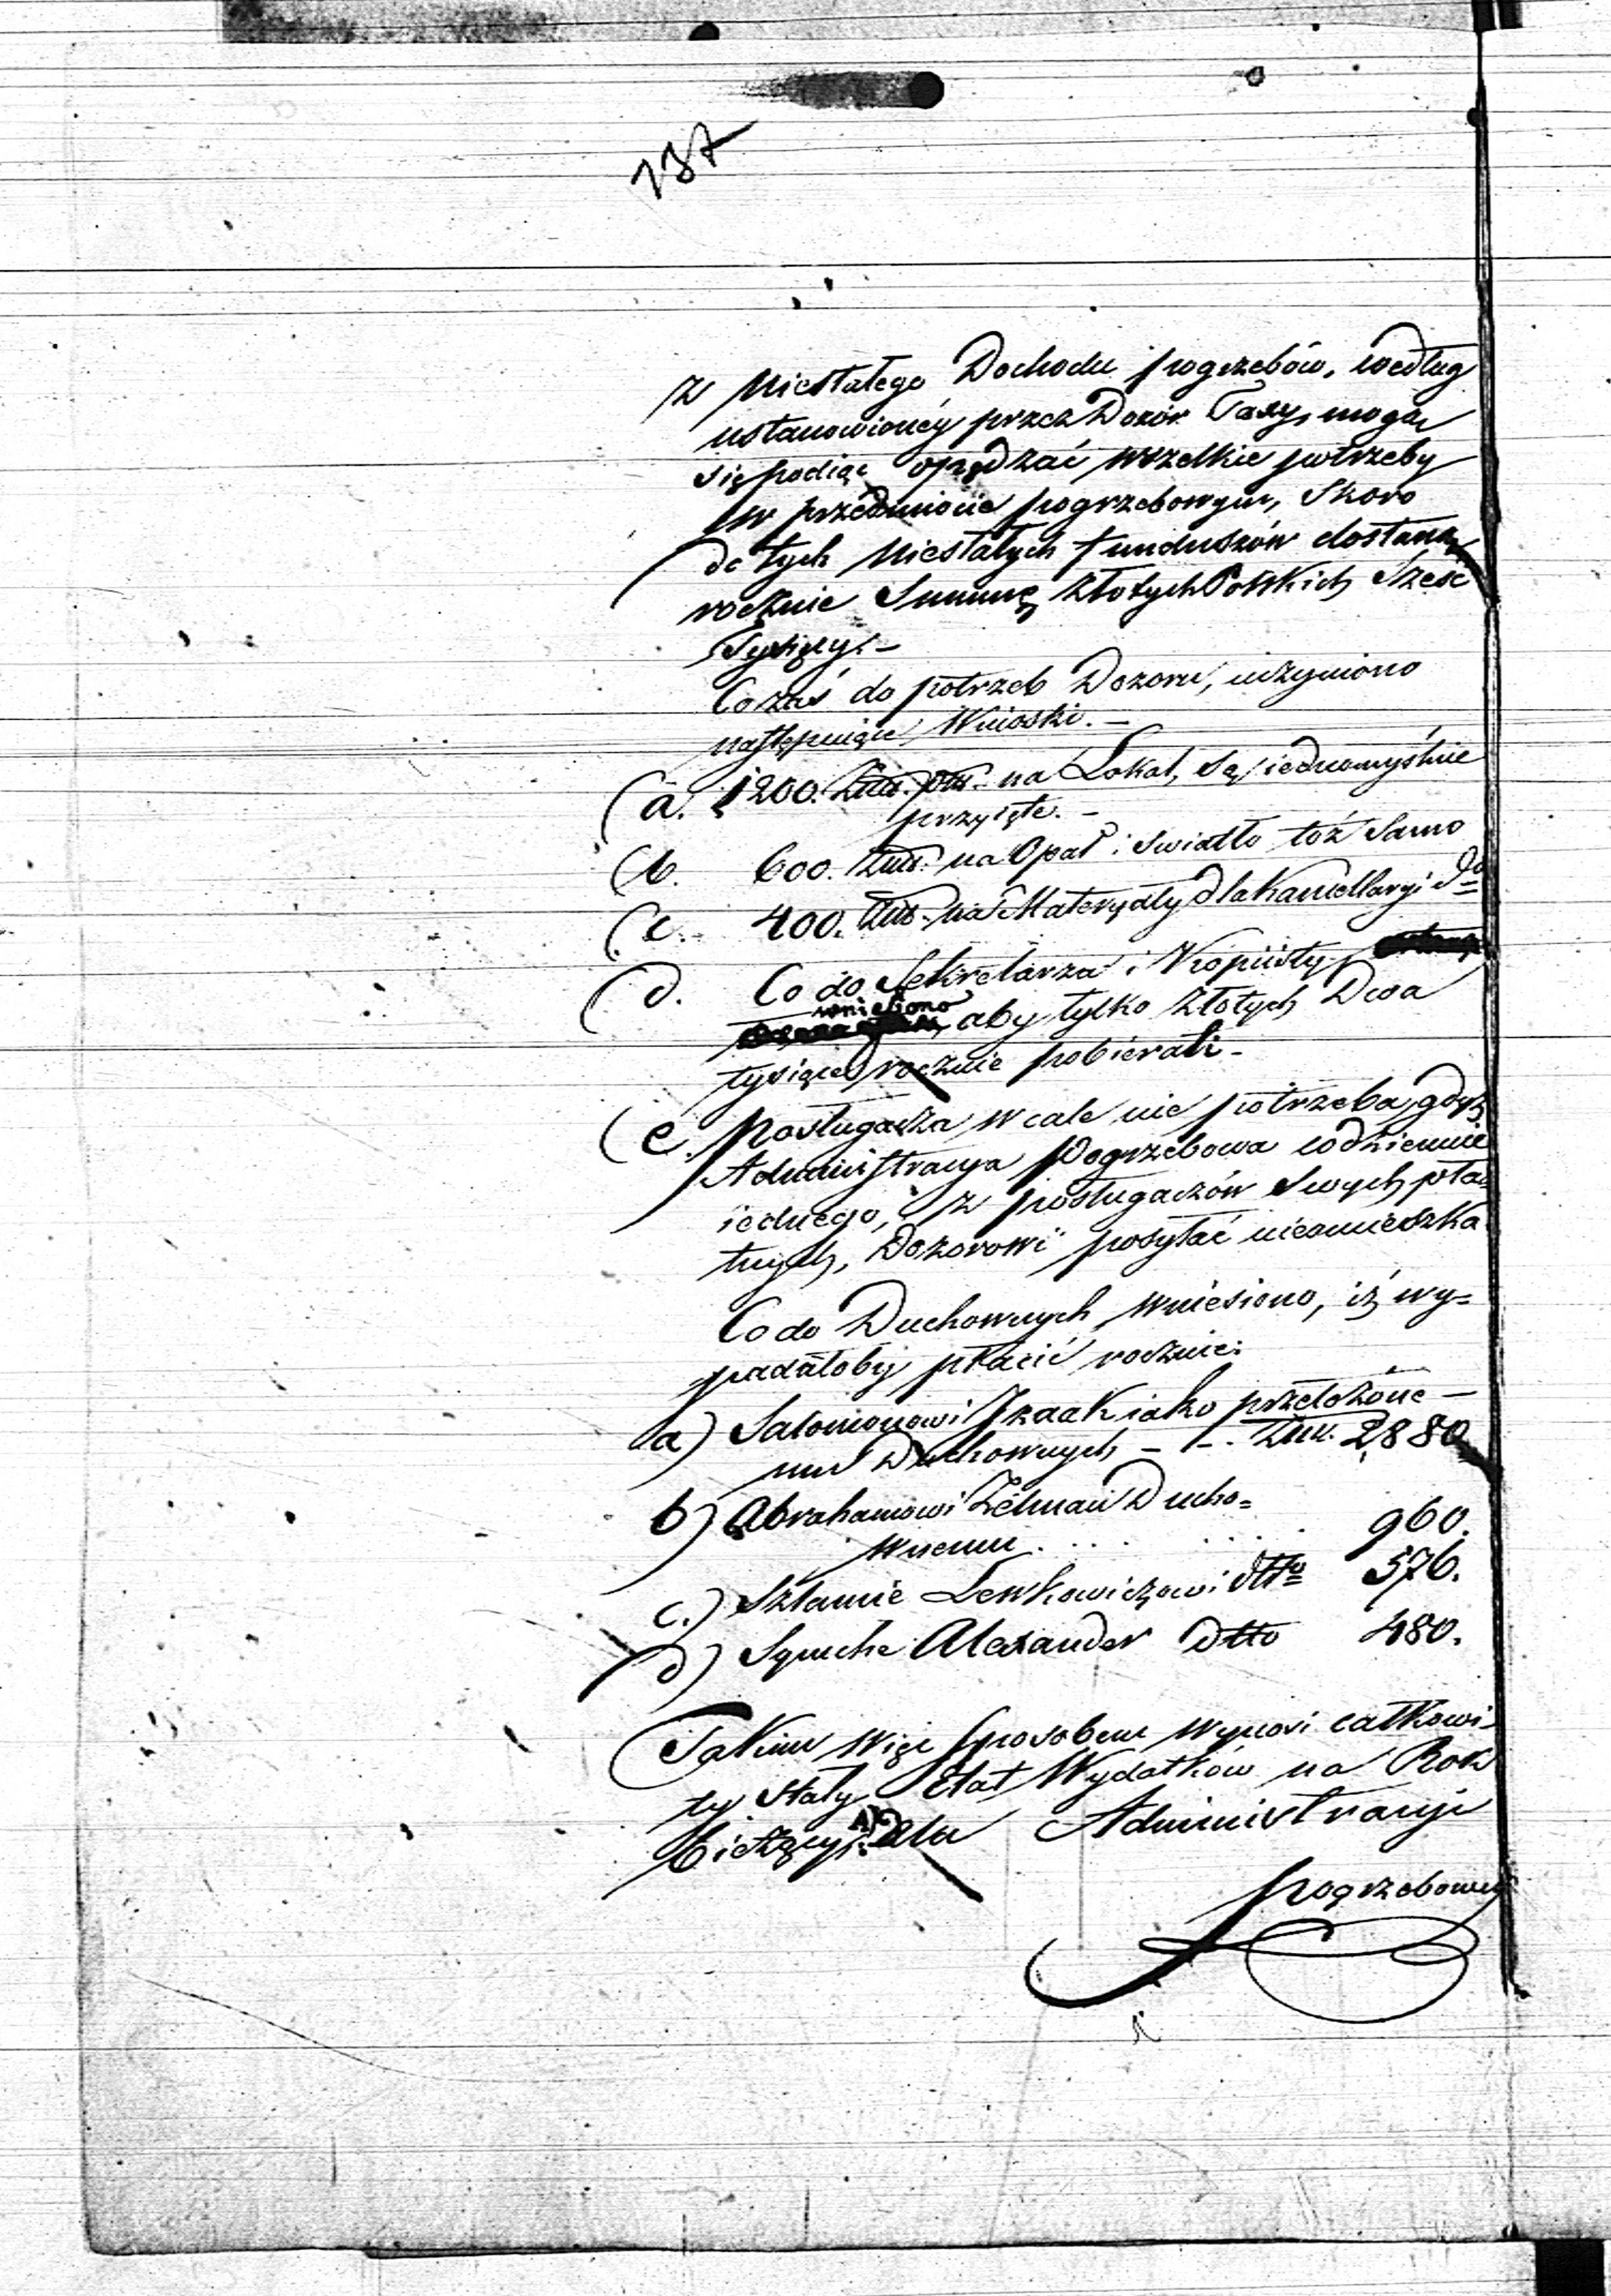 737
z Niestałego Dochodu pogrzebów, według
ustanowionéy przez Dozór Taxy, mogą
się podiąć opędzać wszelkie potrzeby
w przédmiocie pogrzebowym, Skoro
do tych Niestałych funduszów dostaną
rocznie Summę Złotych Polskich Sześć
Tysięcy. –
Co zaś do potrzeb Dozoru, uczyniono
następuiące Wnioski. –
a. 1200. na Lokal, są iednomyślnie
przyięte. –
b. 600. na Opał i Swiatło toż Samo
c. 400. na Materyały dla Kancellaryi do
d. Co do Sekretarza i Kopiisty
wniesiono
aby tylko Złotych Dwa
tysiące rocznie pobierali –
e. Posługacza wcale nie potrzeba, gdyż
Administracya Pogrzebowa codziennie
iednego, z posługaczów Swych płat
tnych, Dozorowi posyłać nieomieszka
Co do Duchownych wniesiono, iż wy=
padałoby płacić rocznie:
a) Salomonowi Izaak iako przełożone –
mu Duchownych – – . 2880
b) Abrahamowi Zelman Ducho=
wnemu . . . . . . 960.
c.) Szlamie Lewkowiczowi dtto 576.
d) Symche Alexander dtto 480.
Takim więc Sposobem wynosi całkowi-
ty Stały Etat Wydatków na Rok
bieżący: dla Administracyi
pogrzebowey